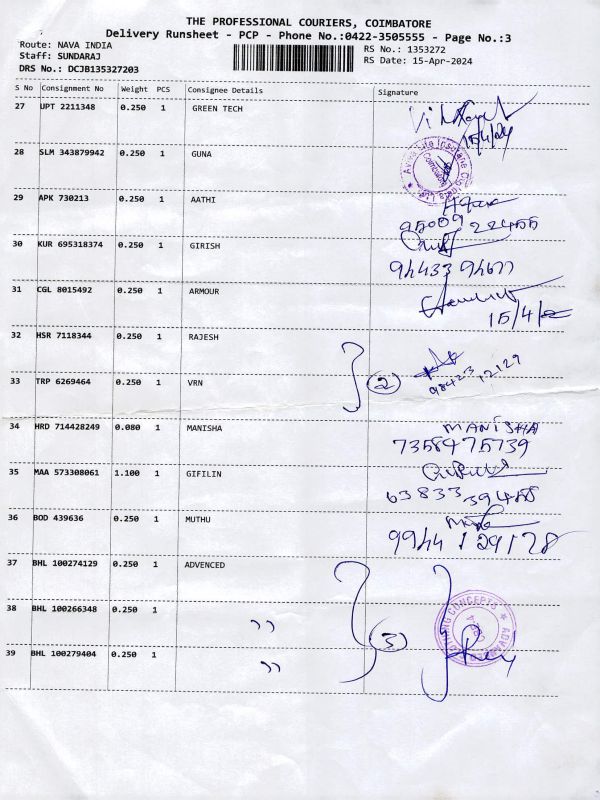 THE PROFESSIONAL COURIERS, COIMBATORE
Delivery Runsheet - PCP - Phone No.:0422-3505555 - Page No.:3
Route: NAVA INDIA
Staff: SUNDARAJ
DRS No.: DCJB135327203
RS No.: 1353272
RS Date: 15-Apr-2024
S No Consignment No Weight PCS Consignee Details Signature
27 UPT 2211348 0.250 1 GREEN TECH
15/4/24
28 SLM 343879942 0.250 1 GUNA
29 APK 730213 0.250 1 AATHI
95009 22455
30 KUR 695318374 0.250 1 GIRISH
94433 94677
31 CGL 8015492 0.250 1 ARMOUR
15/4/
32 HSR 7118344 0.250 1 RAJESH
2
98423 12129
33 TRP 6269464 0.250 1 VRN
34 HRD 714428249 0.080 1 MANISHA MANISHA
7358475739
35 MAA 573308061 1.100 1 GIFILIN
63833 39458
36 BOD 439636 0.250 1 MUTHU
9944129178
37 BHL 100274129 0.250 1 ADVENCED
38 BHL 100266348 0.250 1 ,,
3
39 BHL 100279404 0.250 1 ,,